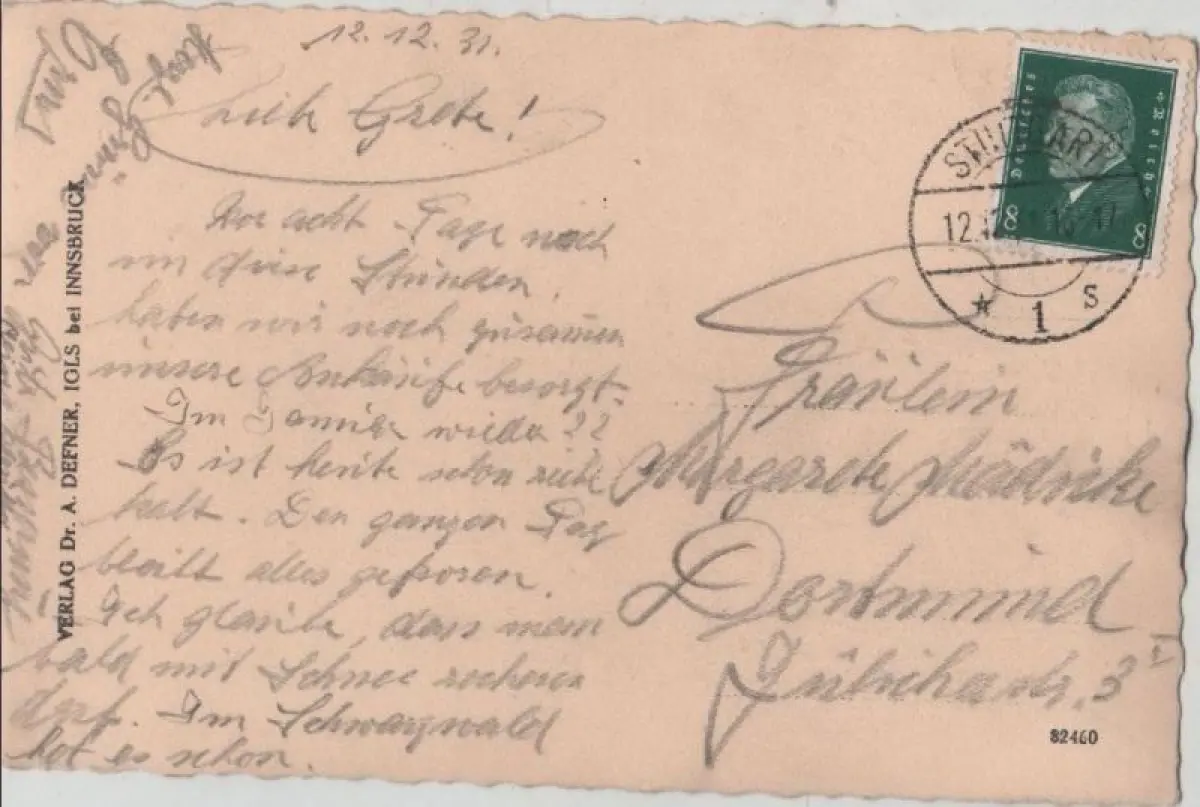 12.12.31.
Liebe Grete!
Vor acht Tage noch
um diese Stunden
haben wir noch zusammen
unsere Einkäufe besorgt.
Im Januar wieder??
Es ist heute schon recht
kalt. Den ganzen Tag
bleibt alles gefroren.
Ich glaube, dass man
bald mit Schnee rechnen
darf. Im Schwarzwald
hat es schon.
VERLAG Dr. A. DEFNER, IGLS bei INNSBRUCK
Deutsches Reich
8 8
STUTTGART
12.12. 16-17
* 1 s
Fräulein
Margarete Mädicke
Dortmund
Jülicherstr. 3 I
82460